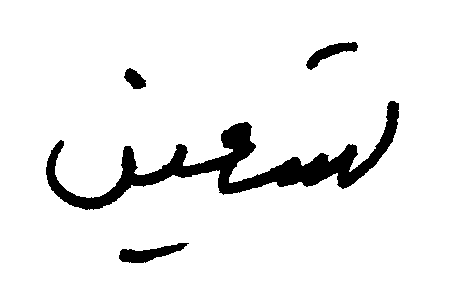 تسعين